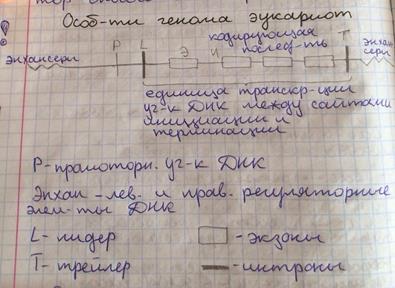 Особ-ти генома эукариот
кодирующая
послед-ть
энхансеры Р L Э И Т энхан
серы
единица транскр-ции
уч-к ДНК между сайтами
инициации и
терминации
Р-промоторн. уч-к ДНК
Энхан-лев. и прав. регуляторные
элем-ты ДНК
L- лидер - экзоны
Т- трейлер - интроны